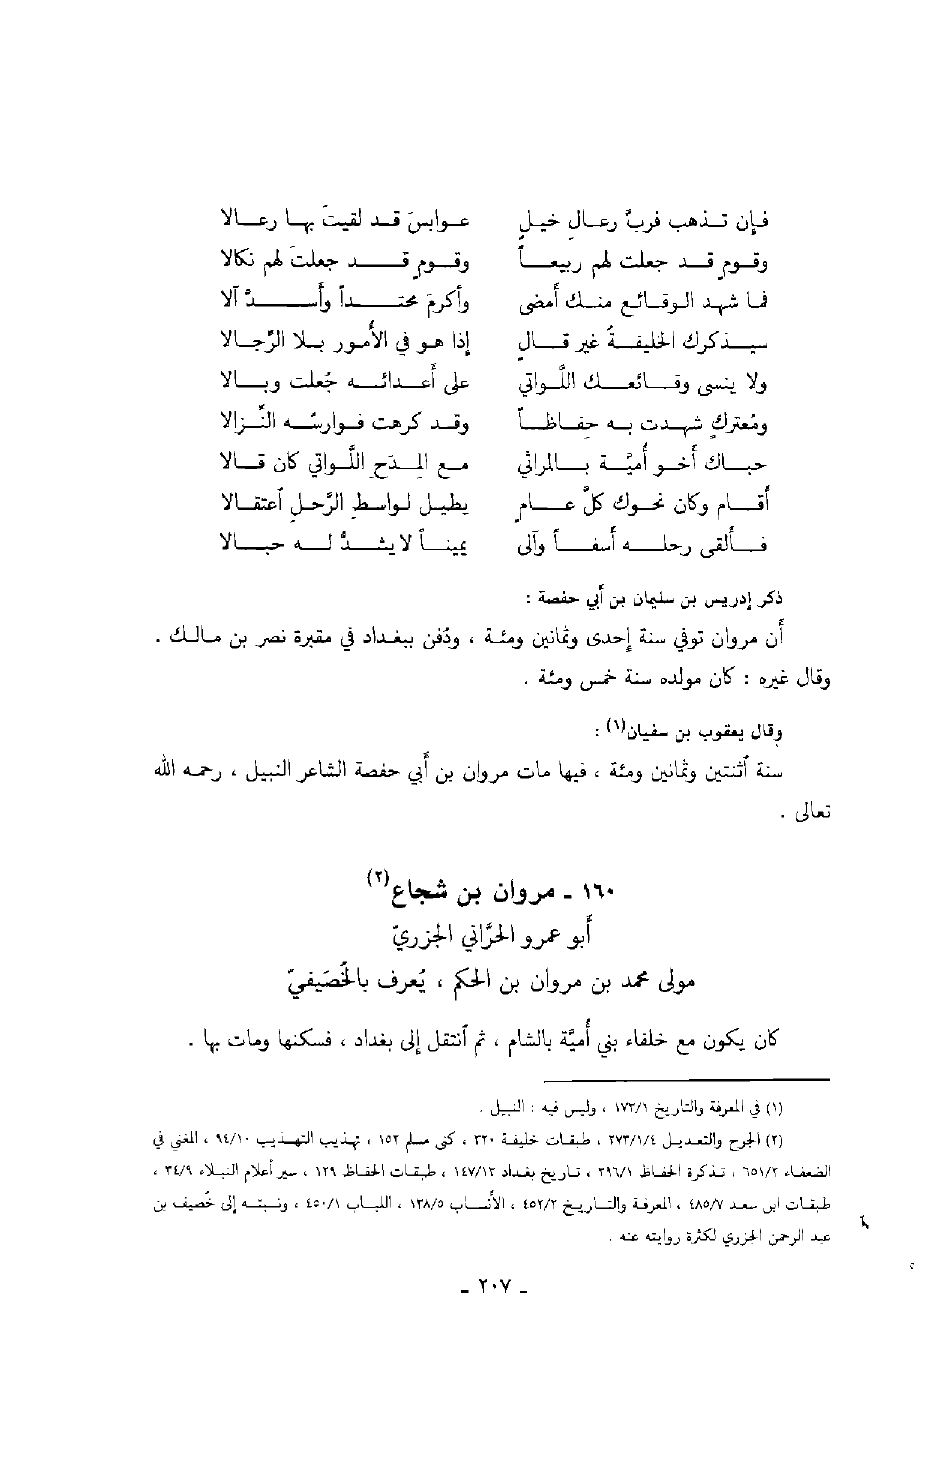 فإن تذهب فربَّ رعال خيلٍ عوابسَ قد لقيتَ بها رعالا
وقومٍ قد جعلت لهم ربيعاً وقومٍ قد جعلتَ لهم نكالا
فما شهد الوقائع منك أمضى وأكرمَ محتداً وأشدُّ آلا
سيذكرك الخليفةُ غير قالٍ إذا هو في الأمور بلا الرِّجالا
ولا ينسى وقائعك اللَّواتي على أعدائه جُعلت وبالا
ومُعتركٍ شهدت به حفاظاً وقد كرهت فوارسُه النِّزالا
حباك أخو أميَّة بالمراثي مع المِدَحِ اللَّواتي كان قالا
أقام وكان نحوك كلَّ عامٍ يطيل لواسطِ الرَّحلِ اَعتقالا
فألقى رحله أسفاً وآلى يميناً لا يشدُّ له حبالا
ذكر إدريس بن سليمان بن أبي حفصة :
أن مروان توفي سنة إحدى وثمانين ومئة ، ودُفن ببغداد في مقبرة نصر بن مالك .
وقال غيره : كان مولده سنة خمس ومئة .
وقال يعقوب بن سفيان(١) :
سنة اَثنتين وثمانين ومئة ، فيها مات مروان بن أبي حفصة الشاعر النبيل ، رحمه الله
تعالى .
١٦٠ ـ مروان بن شجاع(٢)
أبو عمرو الحَرَّاني الجزريّ
مولى محمد بن مروان بن الحكم ، يُعرف بالخُصَيفيّ
كان يكون مع خلفاء بني أميَّة بالشام ، ثم اَنتقل إلى بغداد ، فسكنها ومات بها .
(١) في المعرفة والتاريخ ١٧٣/١ ، وليس فيه : النبيل .
(٢) الجرح والتعديل ٢٧٣/١/٤ ، طبقات خليفة ٣٢٠ ، كنى مسلم ١٥٢ ، تهذيب التهذيب ٩٤/١٠ ، المغني في
الضعفاء ٦٥١/٢ ، تذكرة الحفاظ ٢٩٦/١ ، تاريخ بغداد ١٤٧/١٣ ، طبقات الحفاظ ١٢٩ ، سير أعلام النبلاء ٣٤/٩ ،
طبقات ابن سعد ٤٨٥/٧ ، المعرفة والتاريخ ٤٥٢/٢ ، الأنساب ١٣٨/٥ ، اللباب ٤٥٠/١ ، ونسبته إلى خُصيف بن
عبد الرحمن الجزري لكثرة روايته عنه .
ـ ٢٠٧ ـ